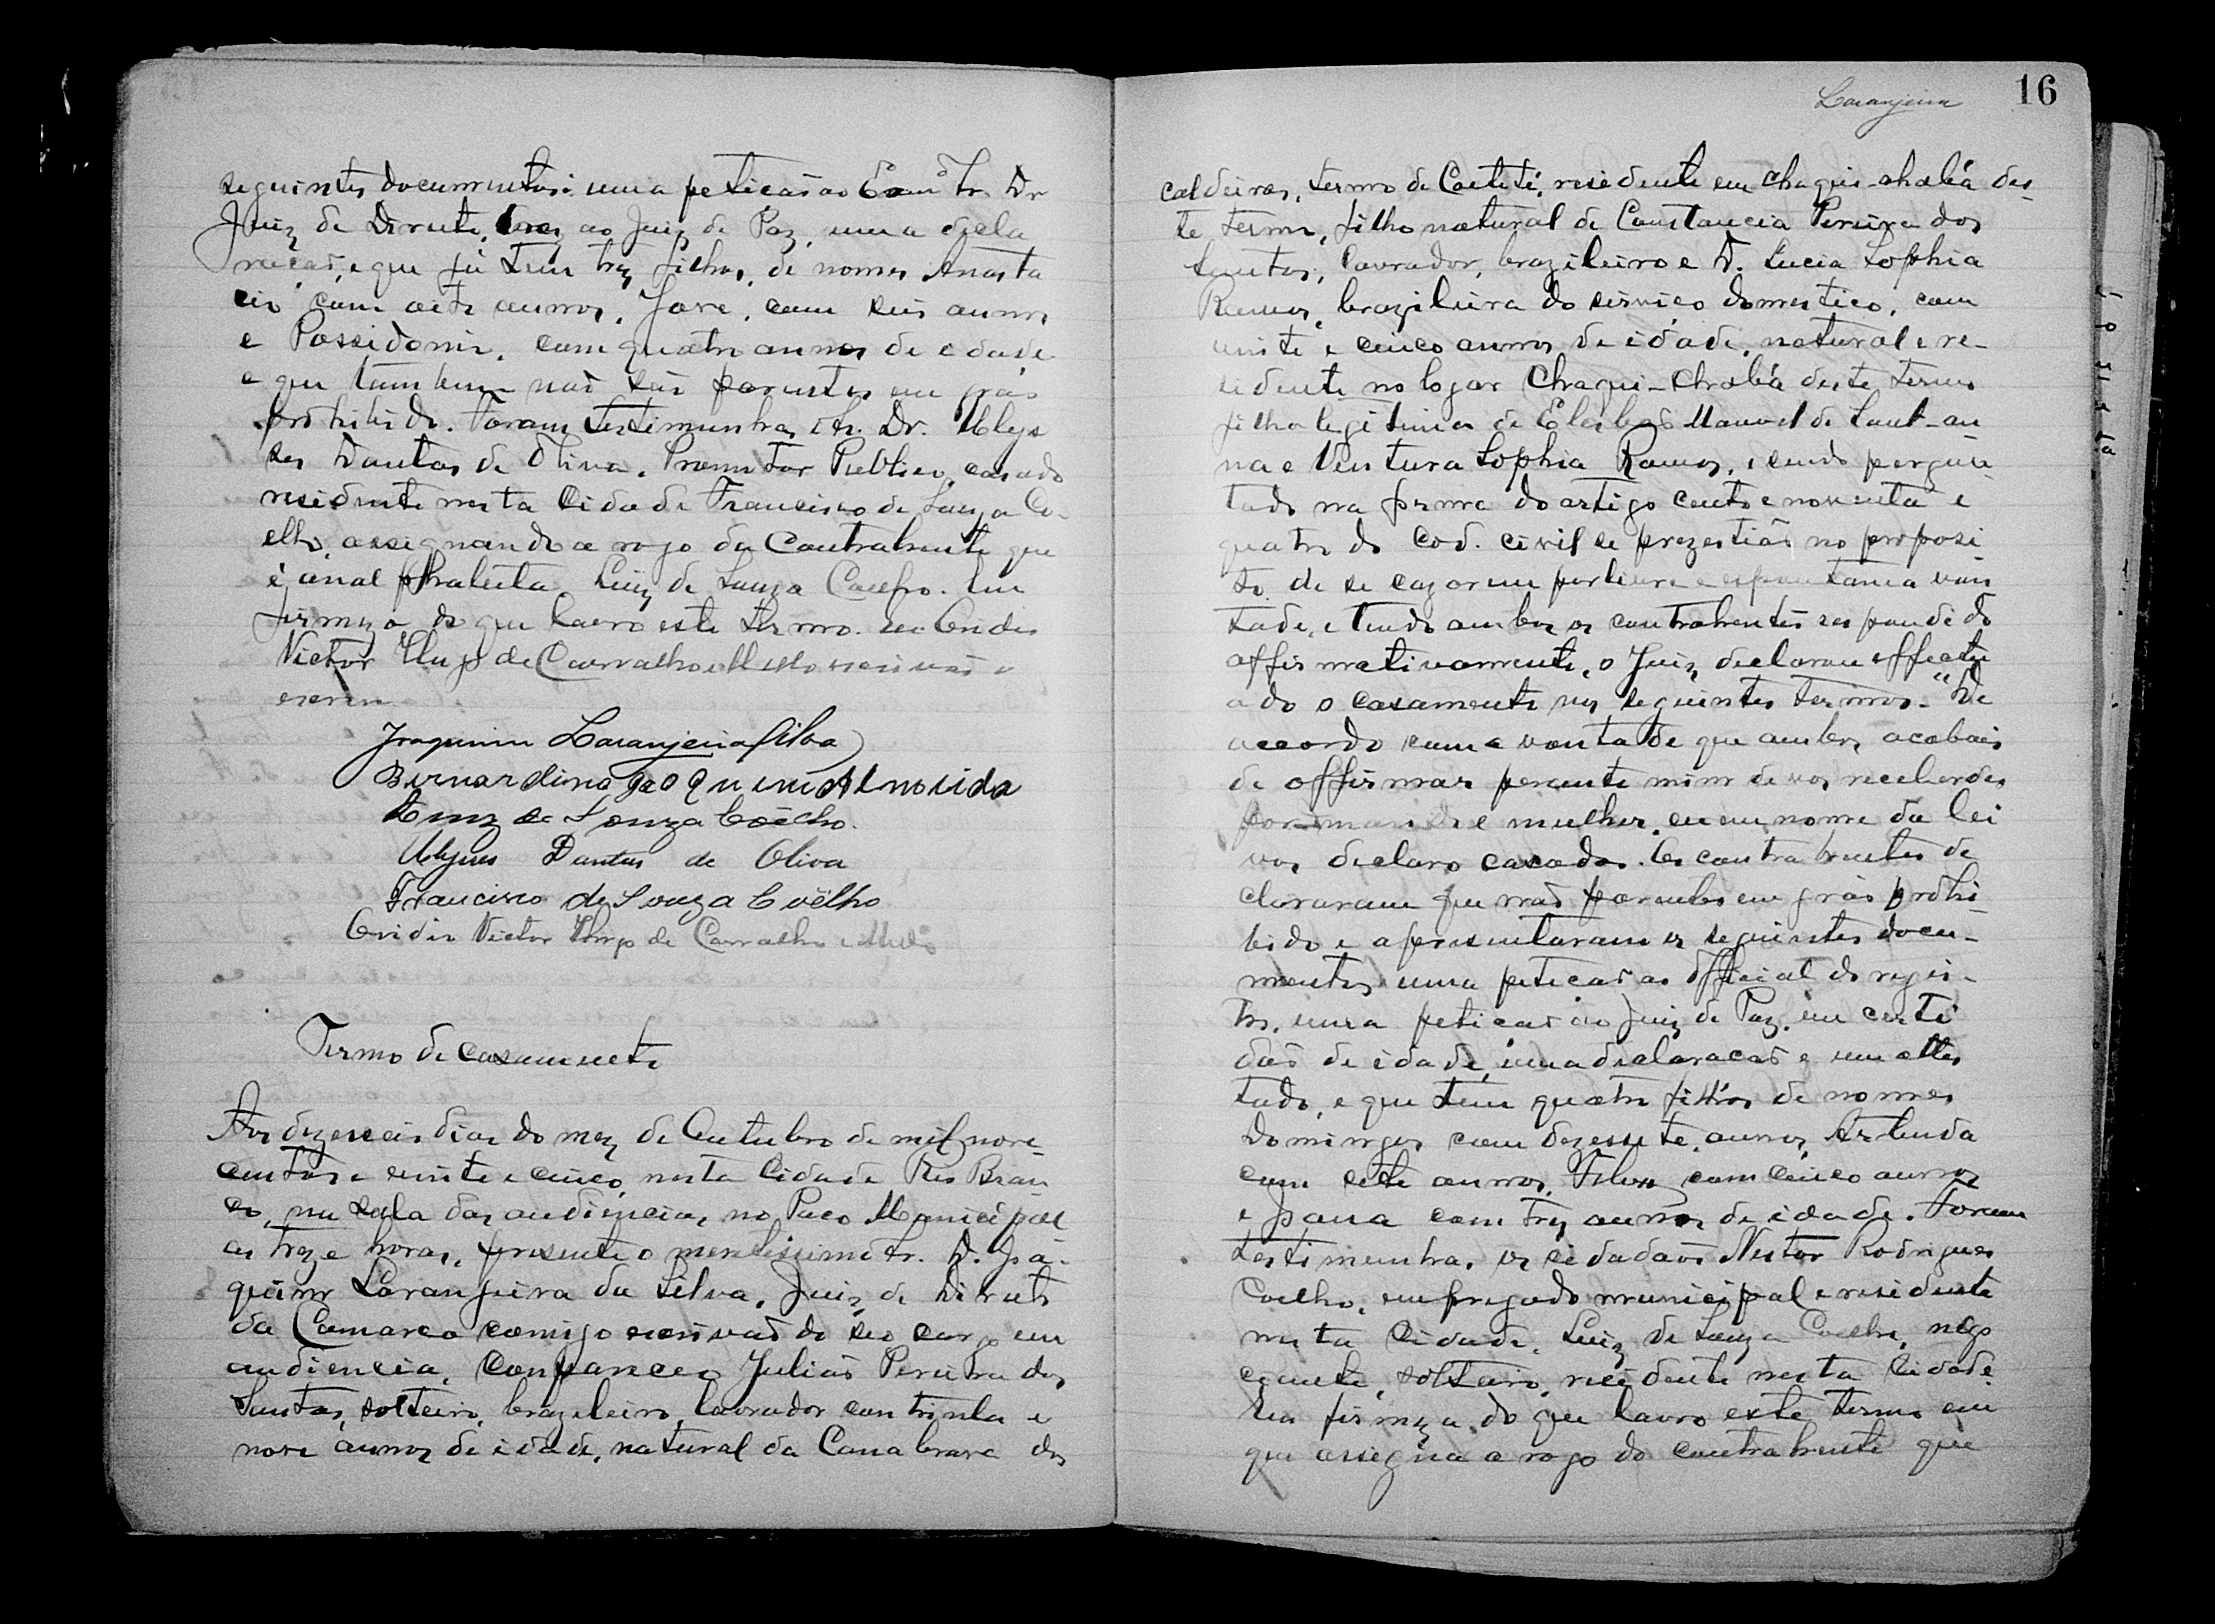 seguintes documentos: uma petição ao Exmº Sr. Dr
Juiz de Direito, ao Juiz de Paz, uma decla
ração, e que já tem trez filhos, de nomes Anasta
cio com oito annos, José, com seis annos
e Possidonio, com quatro annos de edade
e que tambem não são parentes em gráo
prohibido. Foram testimunhas o Sr. Dr. Ulys
ses Dantas de Oliva, Promotor Publico, casado
residente nesta Cidade Francisco de Souza Co-
elho, assignando a rogo da Contrahente que
é analphabeta Luiz de Souza Coelho. Em
firmeza do que lavro este termo. eu Ovidio
Victor Hugo de Carvalho e Mello escrivão o
escrevi
Joaquim Laranjeira Silva
Bernardino Joaquim Almeida
Luiz de Souza Coêlho.
Ulysses Dantas de Oliva
Francisco de Souza Coêlho
Ovidio Victor Hugo de Carvalho e Mello
Termo de casamento
Aos dezeseis dias do mez de Outubro de mil nove
centos e vinte e cinco, nesta Cidade Rio Bran
co, na sala das audiencias no Paço Municipal
as treze horas, presente o meritissimo Sr. D. Joa-
quim Laranjeira da Silva, Juiz de Direito
da Comarca comigo escrivão do seo cargo em
audiencia, compareceo Julião Pereira dos
Santos, solteiro, brazileiro, lavrador con trinta e
nove annos de idade, natural da Canabrava dos
Laranjeira 16
caldeiras, termo de Caeteté, residente em Chaqui-chabá des-
te termo, filho natural de Constancia Pereira dos
Santos, lavrador, brazileiro e D. Lucia Sophia
Ramos, brazileira do serviço domestico, com
vinte e cinco annos de idade, natural e re-
sidente no logar Chaqui-chabá deste termo
filha legitima de Elesbão Manoel de Sant-an
na e Ventura Sophia Ramos, e sendo pergun
tado na forma do artigo cento e noventa e
quatro do Cod. civil se prezestião no proposi
to de se cazarem por livre e espontanea von
tade, e tendo ambos os contrahentes respondido
affirmativamente, o Juiz, declarou effectu
ado o casamento nos seguintes termos - "De
accordo com a vontade que ambos acabais
de affirmar perante mim de vos receberdes
por marido e mulher, eu em nome da lei
vos declaro casados. Os contrahentes de
clararam que não parentes em gráo prohi-
bido e apresentaram os seguintes docu-
mentos uma petição ao Official do regis-
tro, uma petição ao Juiz de Paz, um certi
dão de idade, uma declaração e um attes
tado, e que tem quatro filhos de nomes
Domingos com dezessete annos, Arlinda
com sete annos, com cinco annos
e Joana com trez annos de idade. Foram
testimunhas os cidadaos Nestor Rodrigues
Coelho, empregado municipal e residente
nesta Cidade, Luiz de Souza Coelho, nego
ciante, solteiro, residente nesta Cidade.
Em firmeza do que lavro este termo em
que assigna a rogo do contrahente que